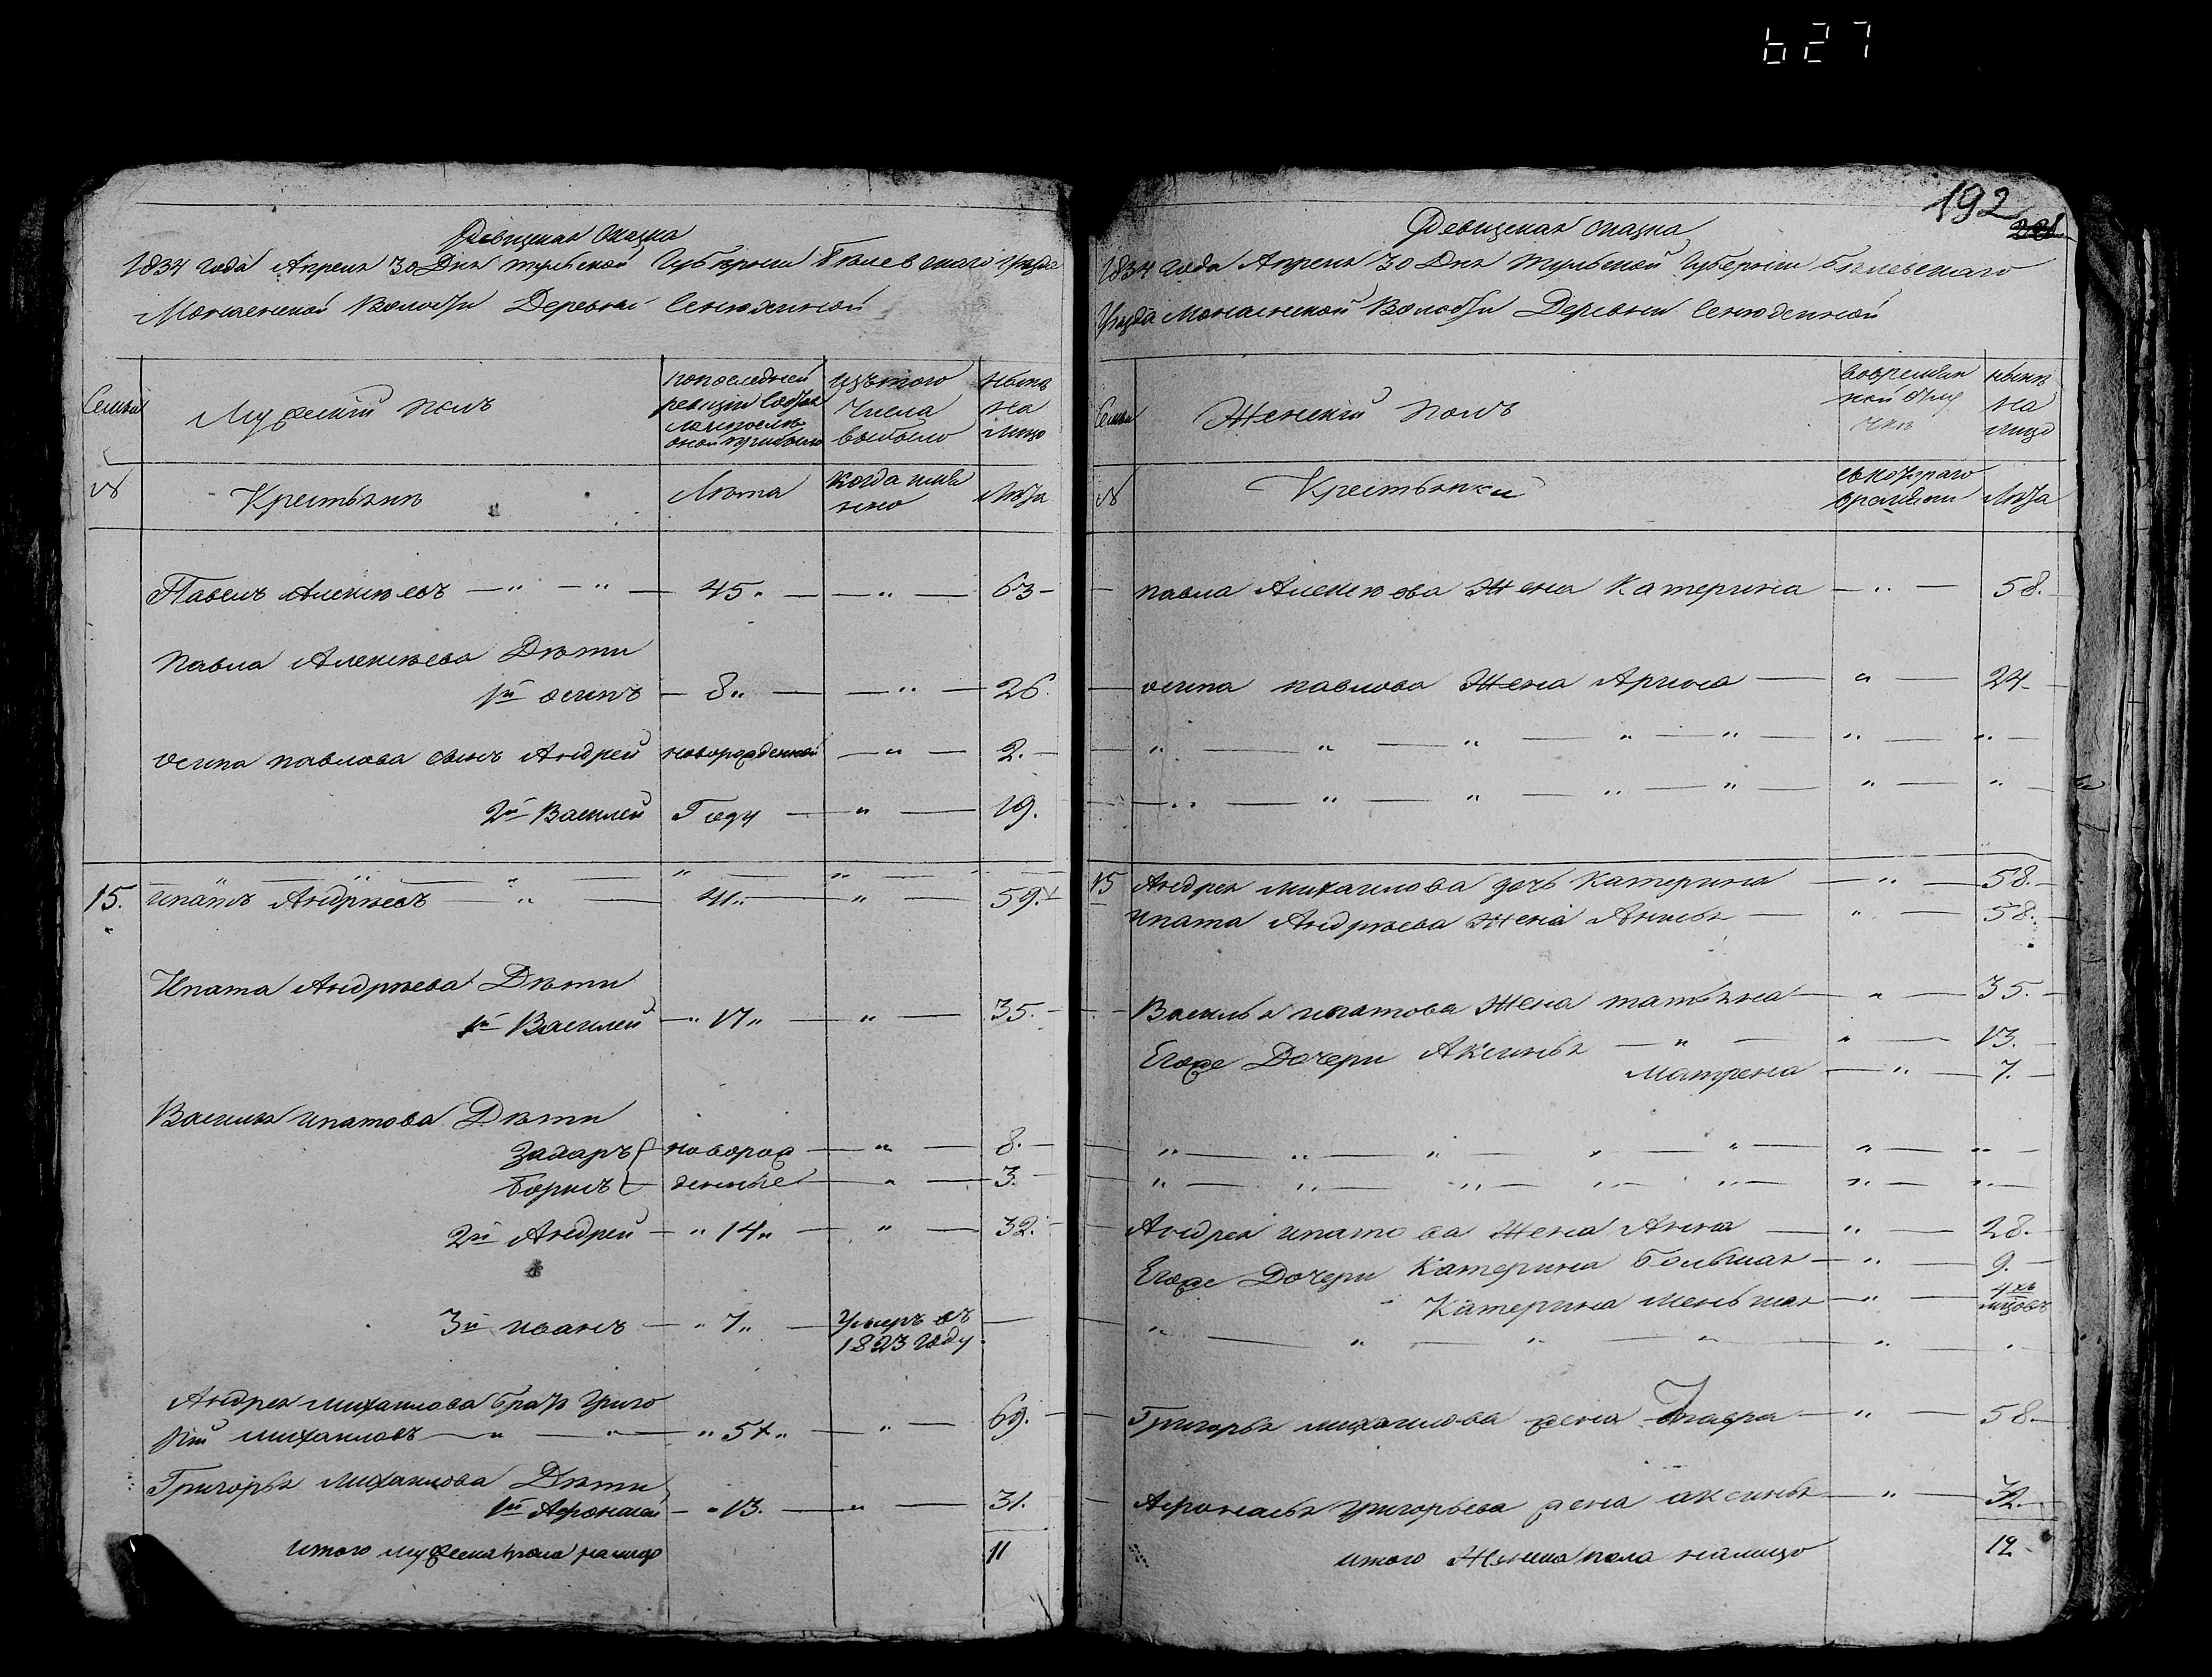 627
Ревизская сказка
1834 года Апреля 30 Дня Тульской Губернии Белевскаго Уезда
Монаенской Волости Деревни Сенюхиной
Семьи
Мужеский полъ
по последней
ревизии состоя
ло и после
оной прибыло
изъ того
числа
выбыло
ныне
на
лицо
№
Крестьяне
Лета
когда имя
нно
Лета
Павелъ Алексеевъ 45 63
Павла Алексеева Дѣти
1й осипъ 8 26
осипа павлова сынъ Андрей новорожденной 2
2й Василей Году 19
15. ипатъ Андрѣевъ 41 59
Ипата Андрѣева Дѣти
1й Василей 17 35
Василья ипатова Дѣти
Захаръ новорож 8
Борисъ денные 3
2й Андрей 14 32
3й иванъ 7 умеръ въ
1823 году
Андрея михаилова братъ Григо
рій михаиловъ 51 69
Григорья Михаилова Дѣти
1й Афонасей 13 31
итого мужеска пола налицо 11
192
Ревизская сказка
1834 года Апреля 30 Дня Тульской Губернии Белевскаго
Уезда Монаенской Волости Деревни Сенюхиной
Семьи
Женскій полъ
во времян
ной отлу
чке
ныне
на
лицо
№
Крестьянки
съ котораго
времяни
Лета
павла Алексеева Жена Катерина 58.
осипа павлова Жена Арина 24
15 Андрея михаилова дочь Катерина 58.
ипата Андрѣева Жена Анисья 58.
Василья ипатова Жена татьяна 35.
Егоже Дочери Аксинья 13.
Матрена 7.
Андрея ипатова Жена Анна 28.
Егоже Дочери Катерина большая 9.
Катерина меньшая 4хъ
мцовъ
Григорья михаилова жена Мавра 58
Афонасья Григорьева жена аксинья 32.
итого Женска пола налицо 12